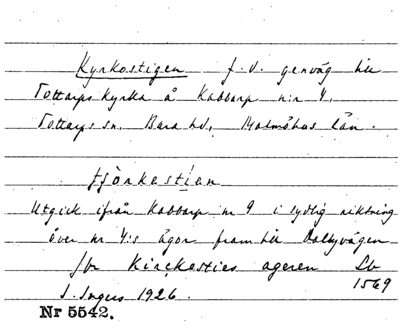 Kyrkostigen f.d. genväg till
Tottarps kyrka å Kabbarp n:r 4,
Tottarps sn, Bara hd, Malmöhus län.
tjörkastian
Utgick ifrån Kabbarp nr 9 i sydlig riktning
över nr 4:s ägor fram till Dalbyvägen
Jbr Kirckesties ageren Lb
1569
S. Ingers 1926.
Nr 5542.